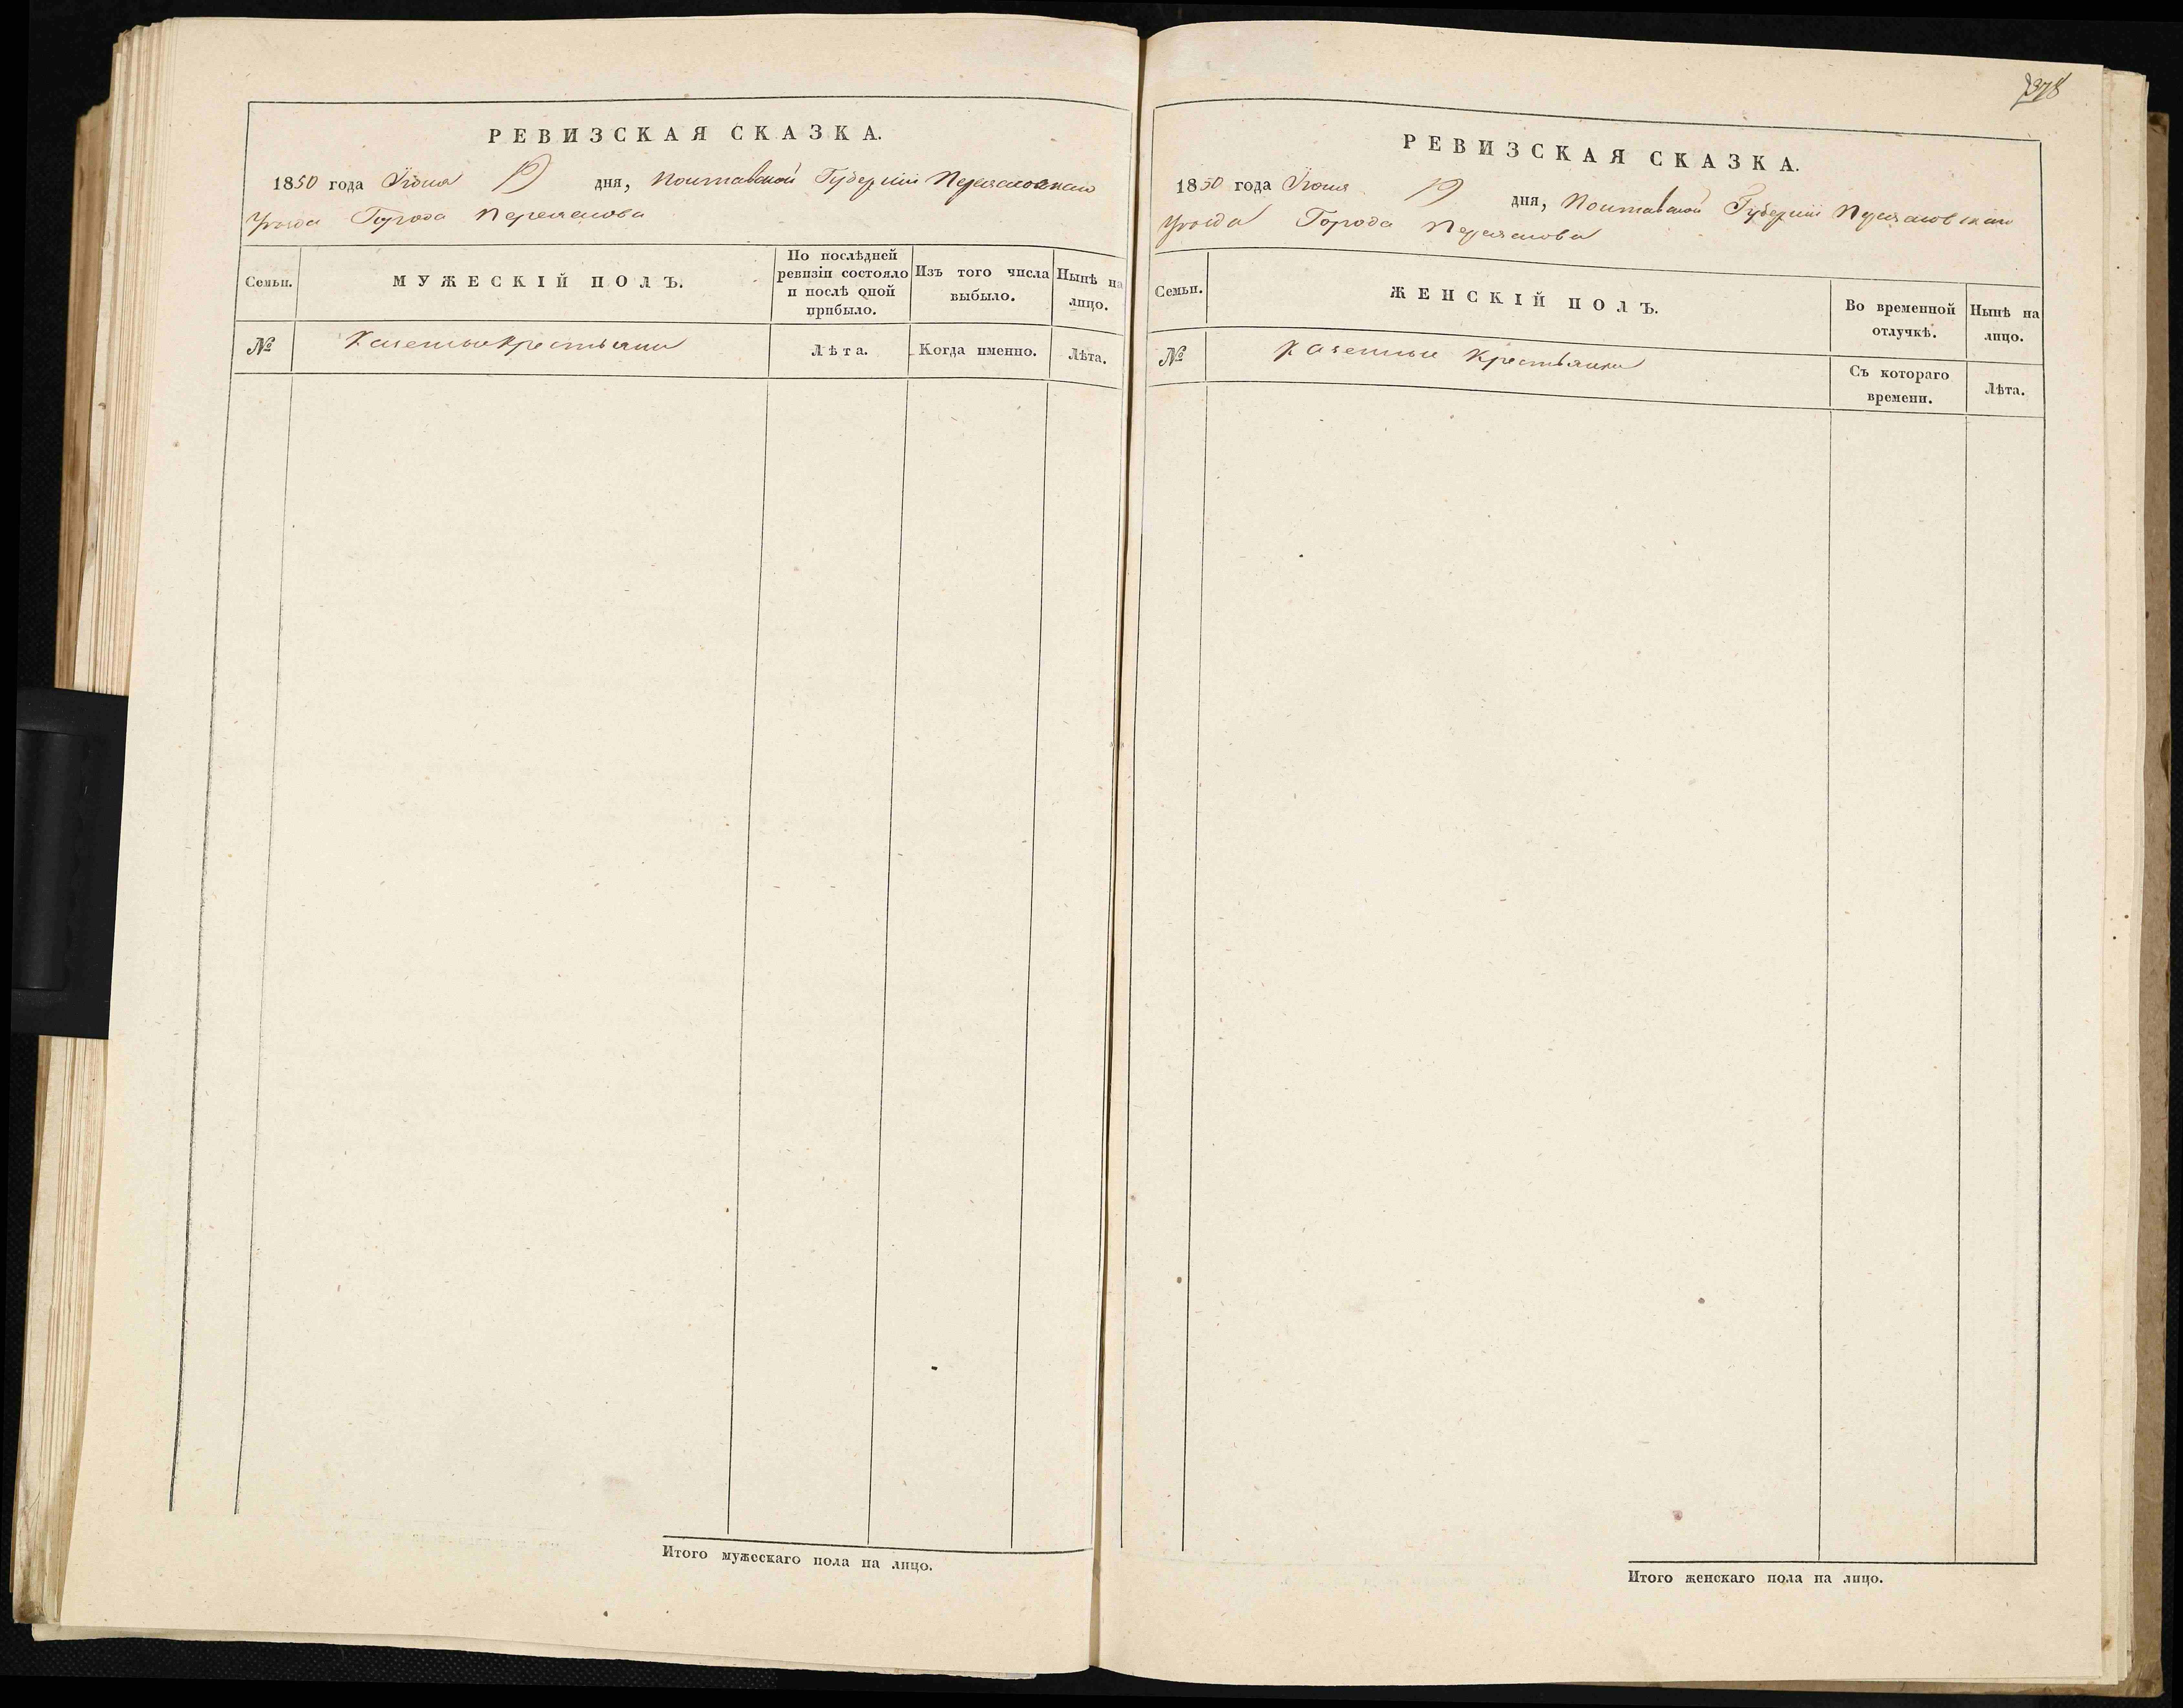 РЕВИЗСКАЯ СКАЗКА.
1850 года Іюня 19 дня, Полтавской Губерніи Переяславскаго
Уѣзда Города Переяслова
Семьи.
МУЖЕСКІЙ ПОЛЪ.
По послѣдней
ревизіи состояло
и послѣ оной
прибыло.
Изъ того числа
выбыло.
Нынѣ на
лицо.
№
Казенные крестьяни
Лѣта.
Когда именно.
Лѣта.
Итого мужескаго пола на лицо.
378
РЕВИЗСКАЯ СКАЗКА.
1850 года Іюня 19 дня, Полтавской Губерніи Переяславскаго
Уѣзда Города Переяслова
Семьи.
ЖЕНСКІЙ ПОЛЪ.
Во временной
отлучкѣ.
Нынѣ на
лицо.
№
Казенные Крестьянки
Съ котораго
времени.
Лѣта.
Итого женскаго пола на лицо.